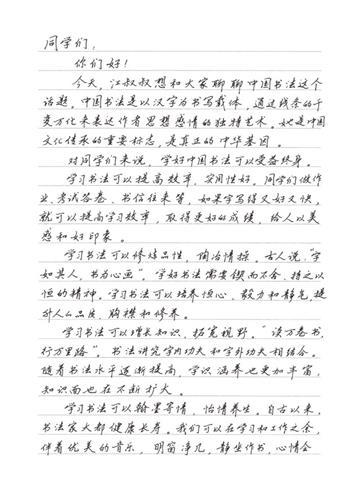 同学们,
你们好!
今天,江叔叔想和大家聊聊中国书法这个
话题。中国书法是以汉字为书写载体,通过线条的千
变万化来表达作者思想感情的独特艺术。她是中国
文化传承的重要标志,是真正的中华基因。
对同学们来说,学好中国书法可以受益终身。
学习书法可以提高效率,实用性好。同学们做作
业、考试答卷、书信往来等,如果字写得又好又快,
就可以提高学习效率,取得更好的成绩,给人以美
感和好印象。
学习书法可以修炼品性,陶冶情操。古人说:“字
如其人,书为心画”。学好书法需要锲而不舍、持之以
恒的精神。学习书法可以培养恒心、毅力和静气,提
升人品、胸襟和修养。
学习书法可以增长知识,拓宽视野。“读万卷书,
行万里路”。书法讲究字内功夫和字外功夫相结合。
随着书法水平逐渐提高,学识涵养也更加丰富,
知识面也在不断扩大。
学习书法可以翰墨寄情,怡情养生。自古以来,
书法家大都健康长寿。我们可以在学习和工作之余,
伴着优美的音乐,明窗净几,静坐作书,心情会